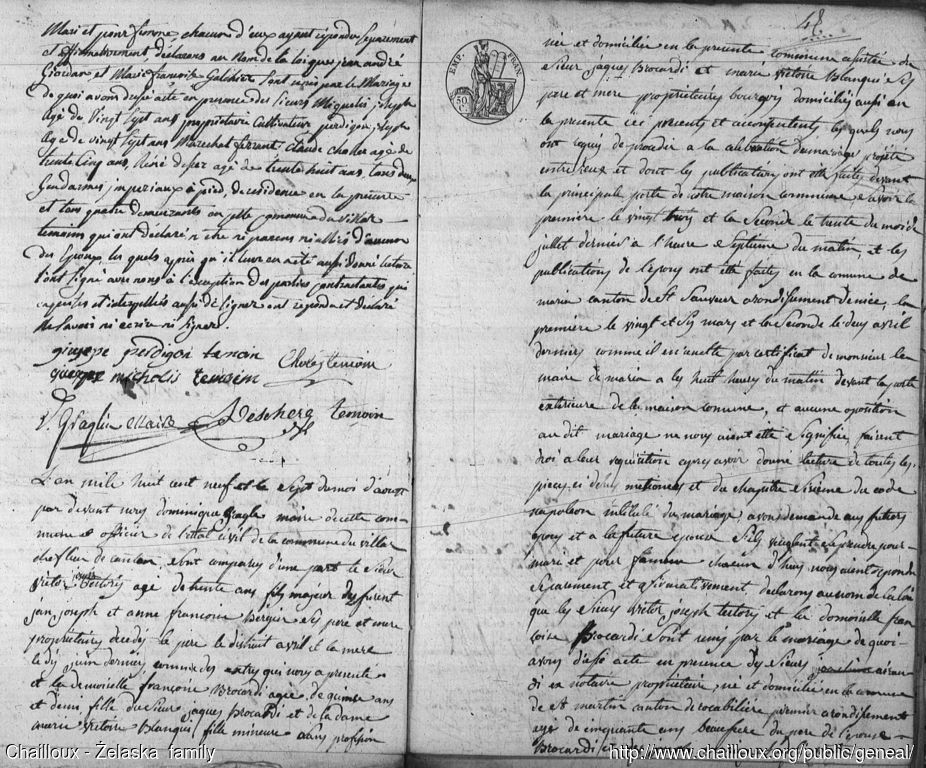 Mari et pour femme chacun d'eux ayant repondu separement
et affirmativement, declarons au nom de la loi que jean andré
Giordan et Marie françoise Galchier sont unis par le Mariage
de quoi avons dressé acte en presence des sieurs Miquelis joseph
agé de vingt sept ans proprietaire Cultivateur perdigon joseph
agé de vingt sept ans Marechal ferrant Claude agé de
trente cinq ans, René agé de trente huit ans, tous deux
Gendarmes imperiaux à pied de residence en la presente
et tous quatre demeurants en cette commune du villar
temoins qui ont déclaré n'être ni parens ni alliés d'aucun
des Epoux les quels après qu'il leur en a été aussi donné lecture
l'ont signé avec nous à l'exception des parties contractantes qui
enquises et interpellés aussi de signer ont repondu et declaré
ne savoir ni ecrire ni signer.
giusepe perdigon temoin
temoin
micholis temoim
Maire
Descherg temoin
L'an mile huit cent neuf et le sept du mois d'aoust
par devant nous dominique maire de cette com-
mune et officier de l'etat civil de la commune du villar
chef lieu de canton, sont comparus d'une part le sieur
victor joseph agé de trente ans fils majeur des furent
jan joseph et anne françoise ses pere et mere
proprietaires decedes le pere le dishuit avril et la mere
le dix juin derniers comme des extraits qui nous a presenté
et la demoiselle françoise Brocardi agée de quinse ans
et demi, fille du sieur jaques Brocardi et de la dame
marie victoire Blanqui, fille mineure sans profession
48
EMP. FRAN.
50 C.
née et domiciliée en la presente commune assistée du
sieur jaques Brocardi et marie victoire Blanqui ses
pere et mere proprietaires bourgeois domiciliés aussi en
la presente ici presents et consentents, les quels nous
ont requis de proceder a la celebration du mariage projeté
entre eux et dont les publications ont eté faites devant
la principale porte de notre maison commune, savoir la
premiere le vingt trois et la seconde le trente du mois de
juillet dernier à l'heure septieme du matin, et les
publications de l'epoux ont eté faites en la comune de
marie canton de St Sauveur arondissement de nice, la
premiere le vingt et six mars et la seconde le deux avril
derniers comme il en conste par certificat de monsieur le
maire de marie a les huit heures du matin devant la porte
exterieure de la maison comune, et aucune oposition
au dit mariage ne nous aient eté signifié, faisant
droi a leur requisition apres avoir donné lecture de toutes les
pieces ci dessus mentionées et du chapitre sixieme du code
napoleon intitulé du mariage, avons demandé aux futurs
epoux et a la future epouse s'ils veulent se prendre pour
mari et pour femme chacun d'eux nous aient repondu
separement et afirmativement declarons au nom de la loi
que les sieurs victor joseph et la demoiselle fran
çoise Brocardi sont unis par le mariage de quoi
avons dressé acte en presence des sieurs
di ex notaire proprietaire, né et domicilié en la commune
de St martin canton de rocabiliere premier arondissement
agé de cinquante ans beaufrere du pere de l'epouse
Brocardi
Chailloux - Żelaska family
http://www.chailloux.org/public/geneal/